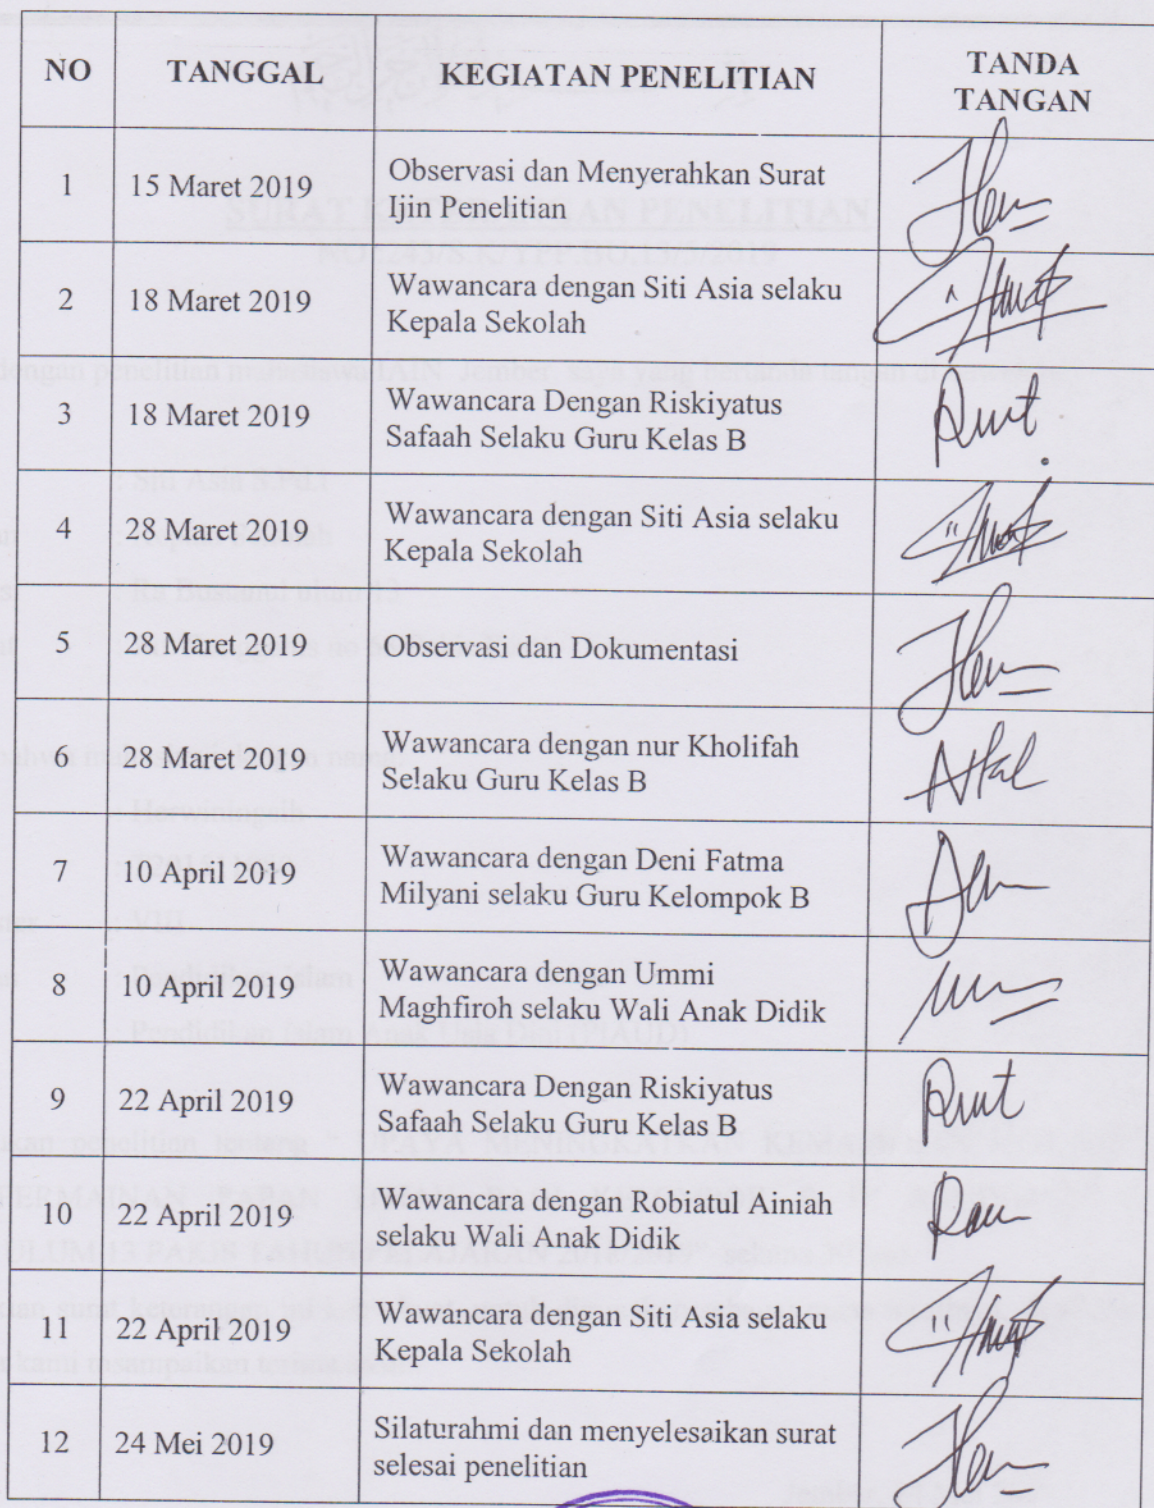 NO TANGGAL KEGIATAN PENELITIAN TANDA
TANGAN
1 15 Maret 2019 Observasi dan Menyerahkan Surat
Ijin Penelitian
2 18 Maret 2019 Wawancara dengan Siti Asia selaku
Kepala Sekolah
3 18 Maret 2019 Wawancara Dengan Riskiyatus
Safaah Selaku Guru Kelas B
4 28 Maret 2019 Wawancara dengan Siti Asia selaku
Kepala Sekolah
5 28 Maret 2019 Observasi dan Dokumentasi
6 28 Maret 2019 Wawancara dengan nur Kholifah
Selaku Guru Kelas B
7 10 April 2019 Wawancara dengan Deni Fatma
Milyani selaku Guru Kelompok B
8 10 April 2019 Wawancara dengan Ummi
Maghfiroh selaku Wali Anak Didik
9 22 April 2019 Wawancara Dengan Riskiyatus
Safaah Selaku Guru Kelas B
10 22 April 2019 Wawancara dengan Robiatul Ainiah
selaku Wali Anak Didik
11 22 April 2019 Wawancara dengan Siti Asia selaku
Kepala Sekolah
12 24 Mei 2019 Silaturahmi dan menyelesaikan surat
selesai penelitian